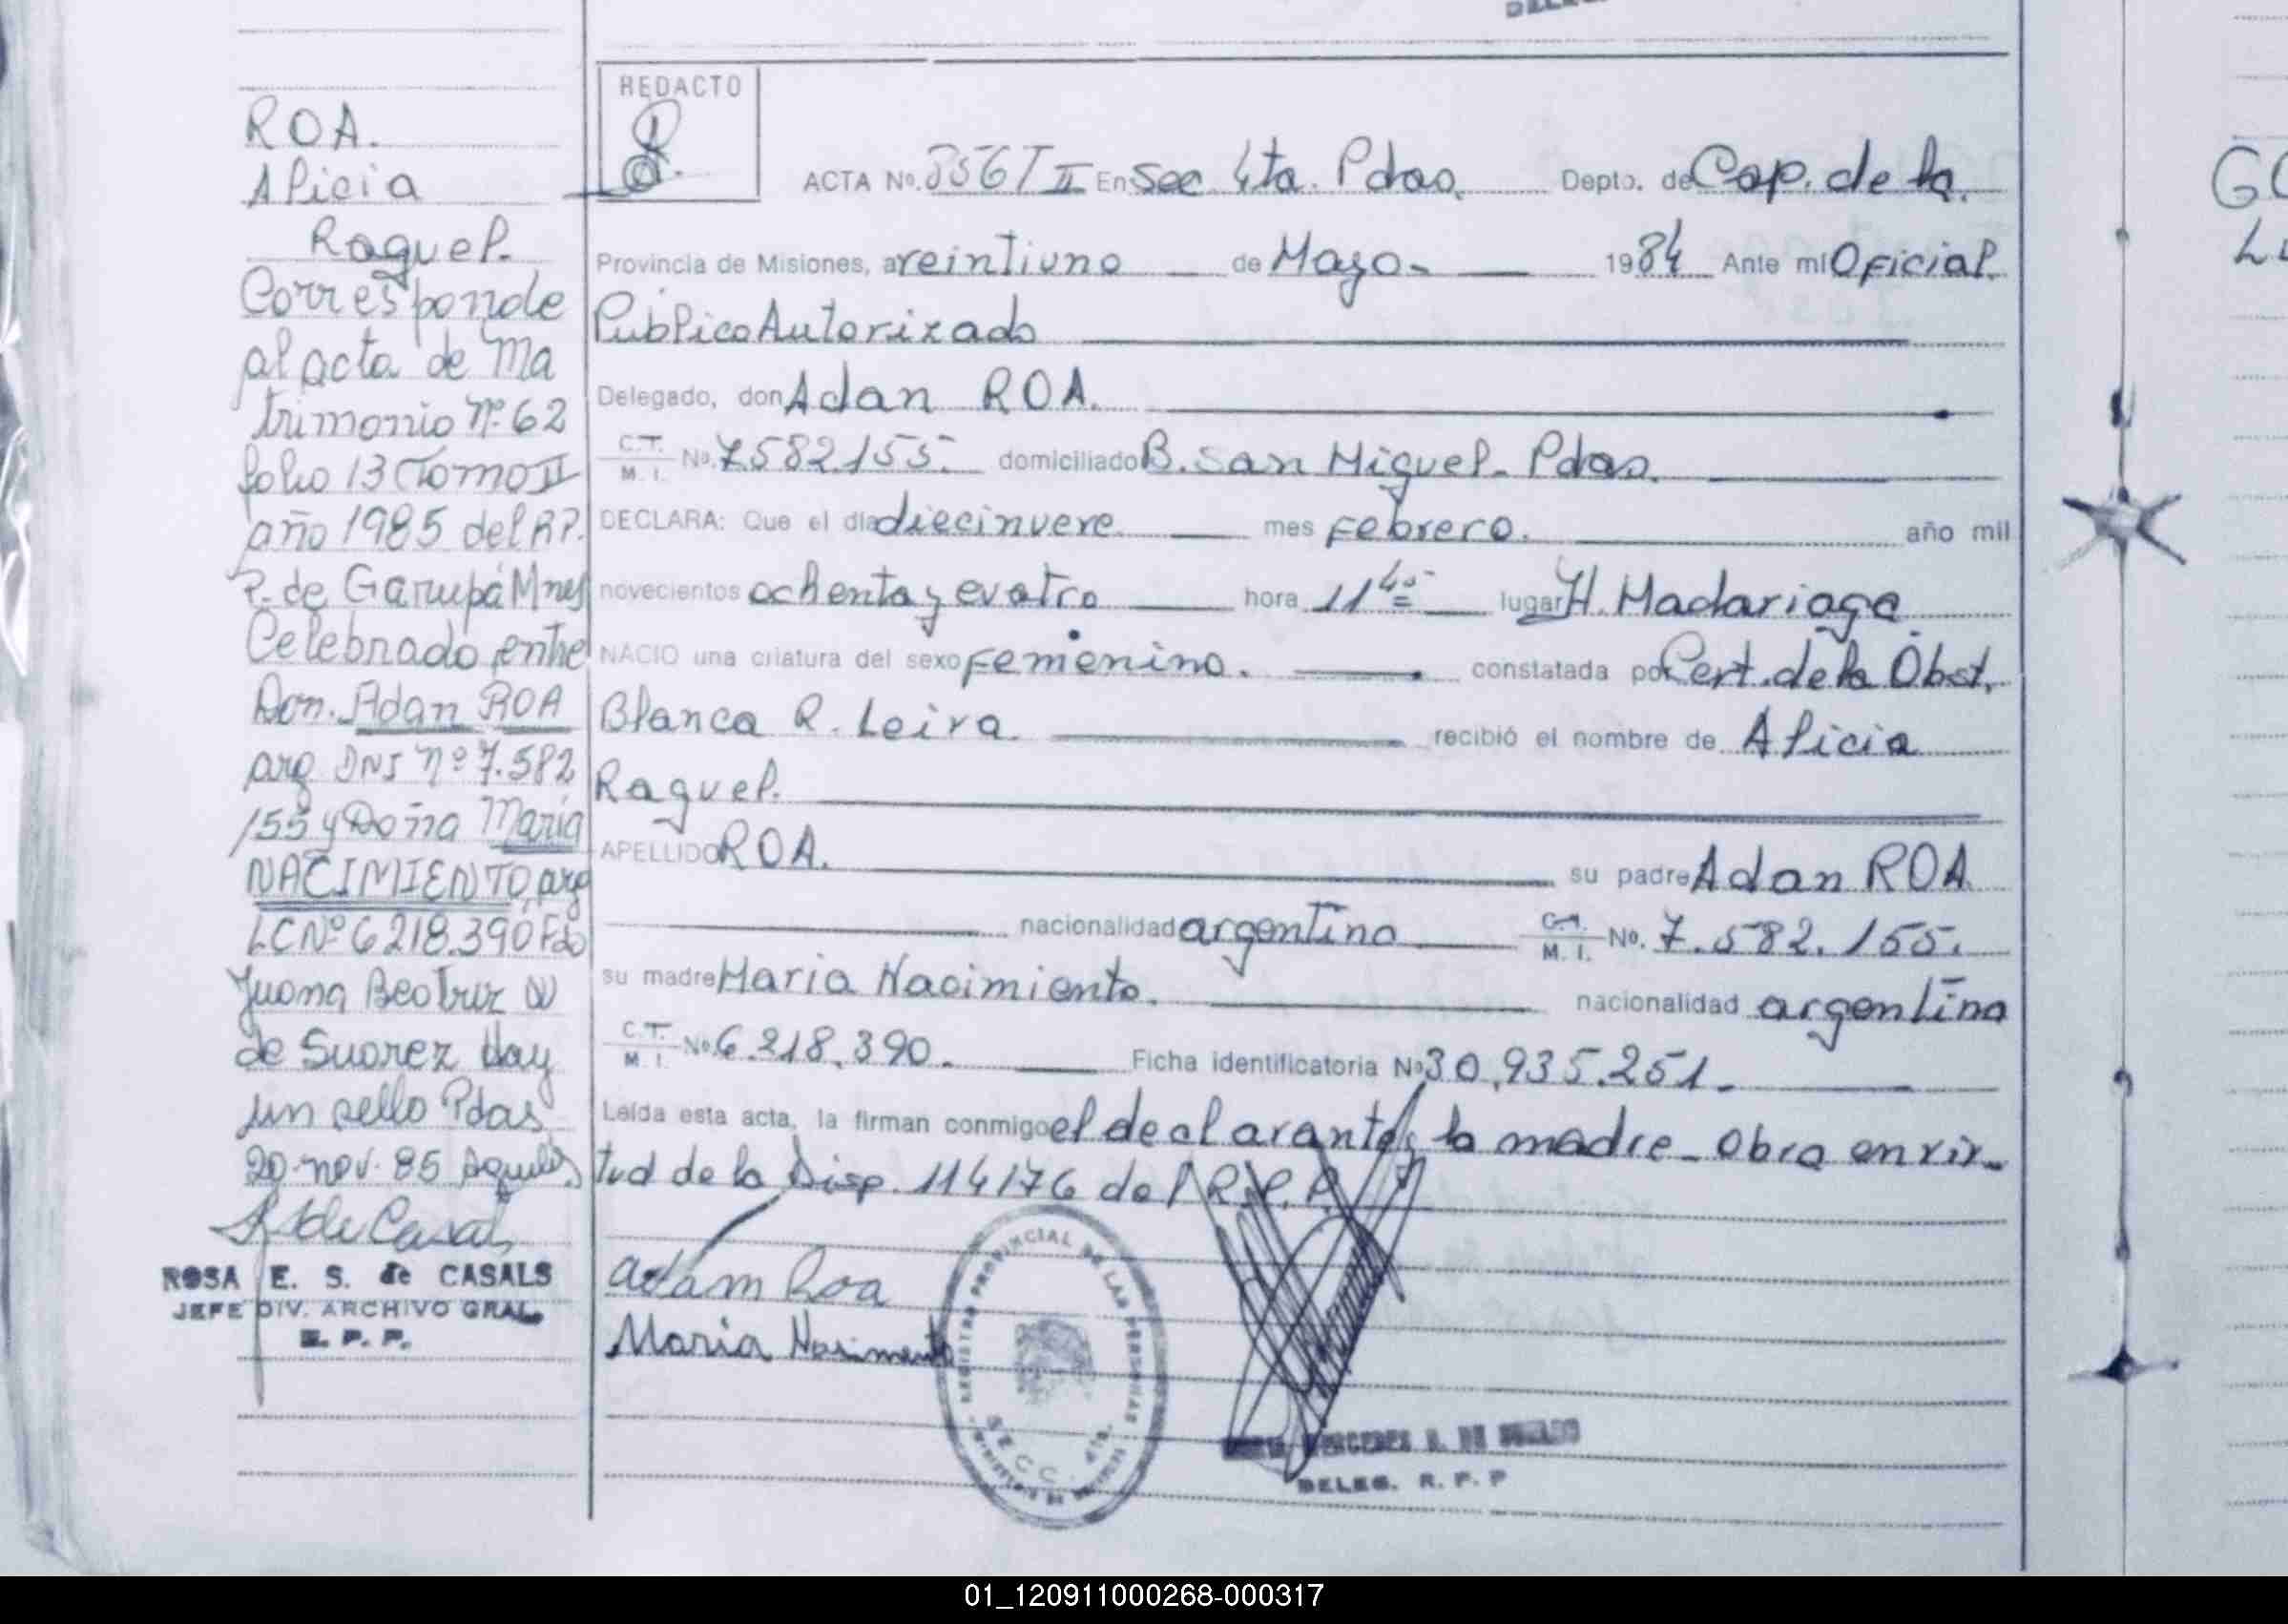 ROA.
Alicia
Raquel.
Corresponde
al acta de Ma
trimonio Nº 62
folio 13 Tomo II
año 1985 del R.P.
P. de Garupá Mnes
Celebrado entre
Don. Adan ROA
arg DNI nº 7.582
155 y Doña Maria
NACIMIENTO, arg
LC Nº 6218.390 Fdo
Juana Beatriz
de Suarez Hay
un sello Pdas
20-nov-85
ROSA E. S. de CASALS
JEFE DIV. ARCHIVO GRAL.
R. P. P.
REDACTO
ACTA Nº. 356 T II En Sec 4ta. Pdas. Depto. de Cap. de la
Provincia de Misiones, a veintiuno de Mayo- 1984 Ante mí Oficial
Publico Autorizado
Delegado, don Adan ROA.
C.T. M. I. Nº. 7.582.155. domiciliado B. San Miguel- Pdas.
DECLARA: Que el día diecinueve mes Febrero. año mil
novecientos ochenta y cuatro hora 11 45 lugar H. Madariaga.
NACIO una criatura del sexo Femenino. constatada por Cert. de la Obst.
Blanca R. Leiva recibió el nombre de Alicia
Raquel.
APELLIDO ROA. su padre Adan ROA
nacionalidad argentino C.T. M. I. Nº. 7.582.155.
su madre Maria Nacimiento. nacionalidad argentina
C.T. M. I. Nº 6.218.390. Ficha identificatoria Nº 30.935.251.
Leída esta acta, la firman conmigo el declarante y la madre- Obra en vir-
tud de la Disp. 114/76 del R.P.P.
adam Roa
Maria Nasimento
REGISTRO PROVINCIAL DE LAS PERSONAS
SECC. 4ta.
MERCEDES
DELEG. R. P. P
01_120911000268-000317